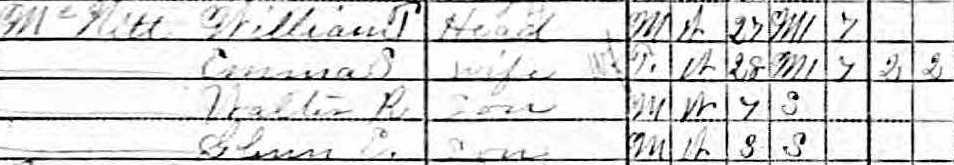 Mc Nitt William T Head M W 27 M1 7
Emma S wife F. W 28 M1 7 2 2
Walter R. son M W 7 S
Glenn E. son M W 3 S